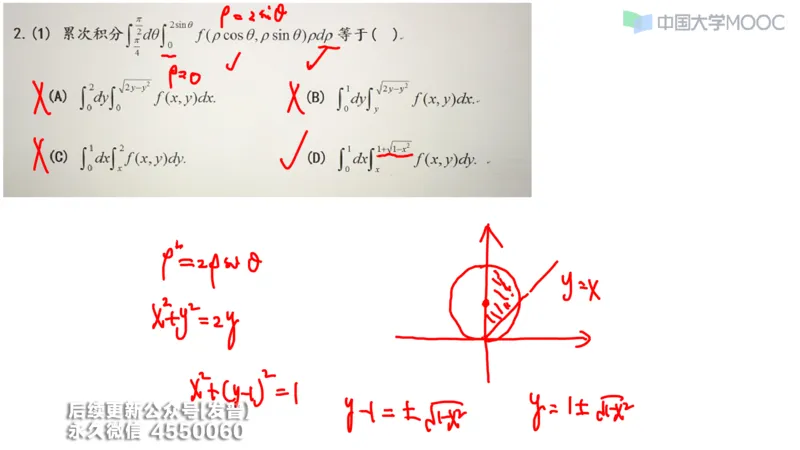 中国大学MOOC
ρ=2sinθ
2.(1) 累次积分∫_{π/4}^{π/2}dθ∫_0^{2sinθ} f(ρcosθ,ρsinθ)ρdρ 等于( ).
ρ=0
(A) ∫_0^2 dy∫_0^{√(2y-y²)} f(x,y)dx.
(B) ∫_0^1 dy∫_y^{√(2y-y²)} f(x,y)dx.
(C) ∫_0^1 dx∫_x^2 f(x,y)dy.
(D) ∫_0^1 dx∫_x^{1+√(1-x²)} f(x,y)dy.
ρ²=2ρsinθ
y=x
x²+y²=2y
x²+(y-1)²=1
y-1=±√(1-x²)
y=1±√(1-x²)
后续更新公众号[发普]
永久微信 4550060